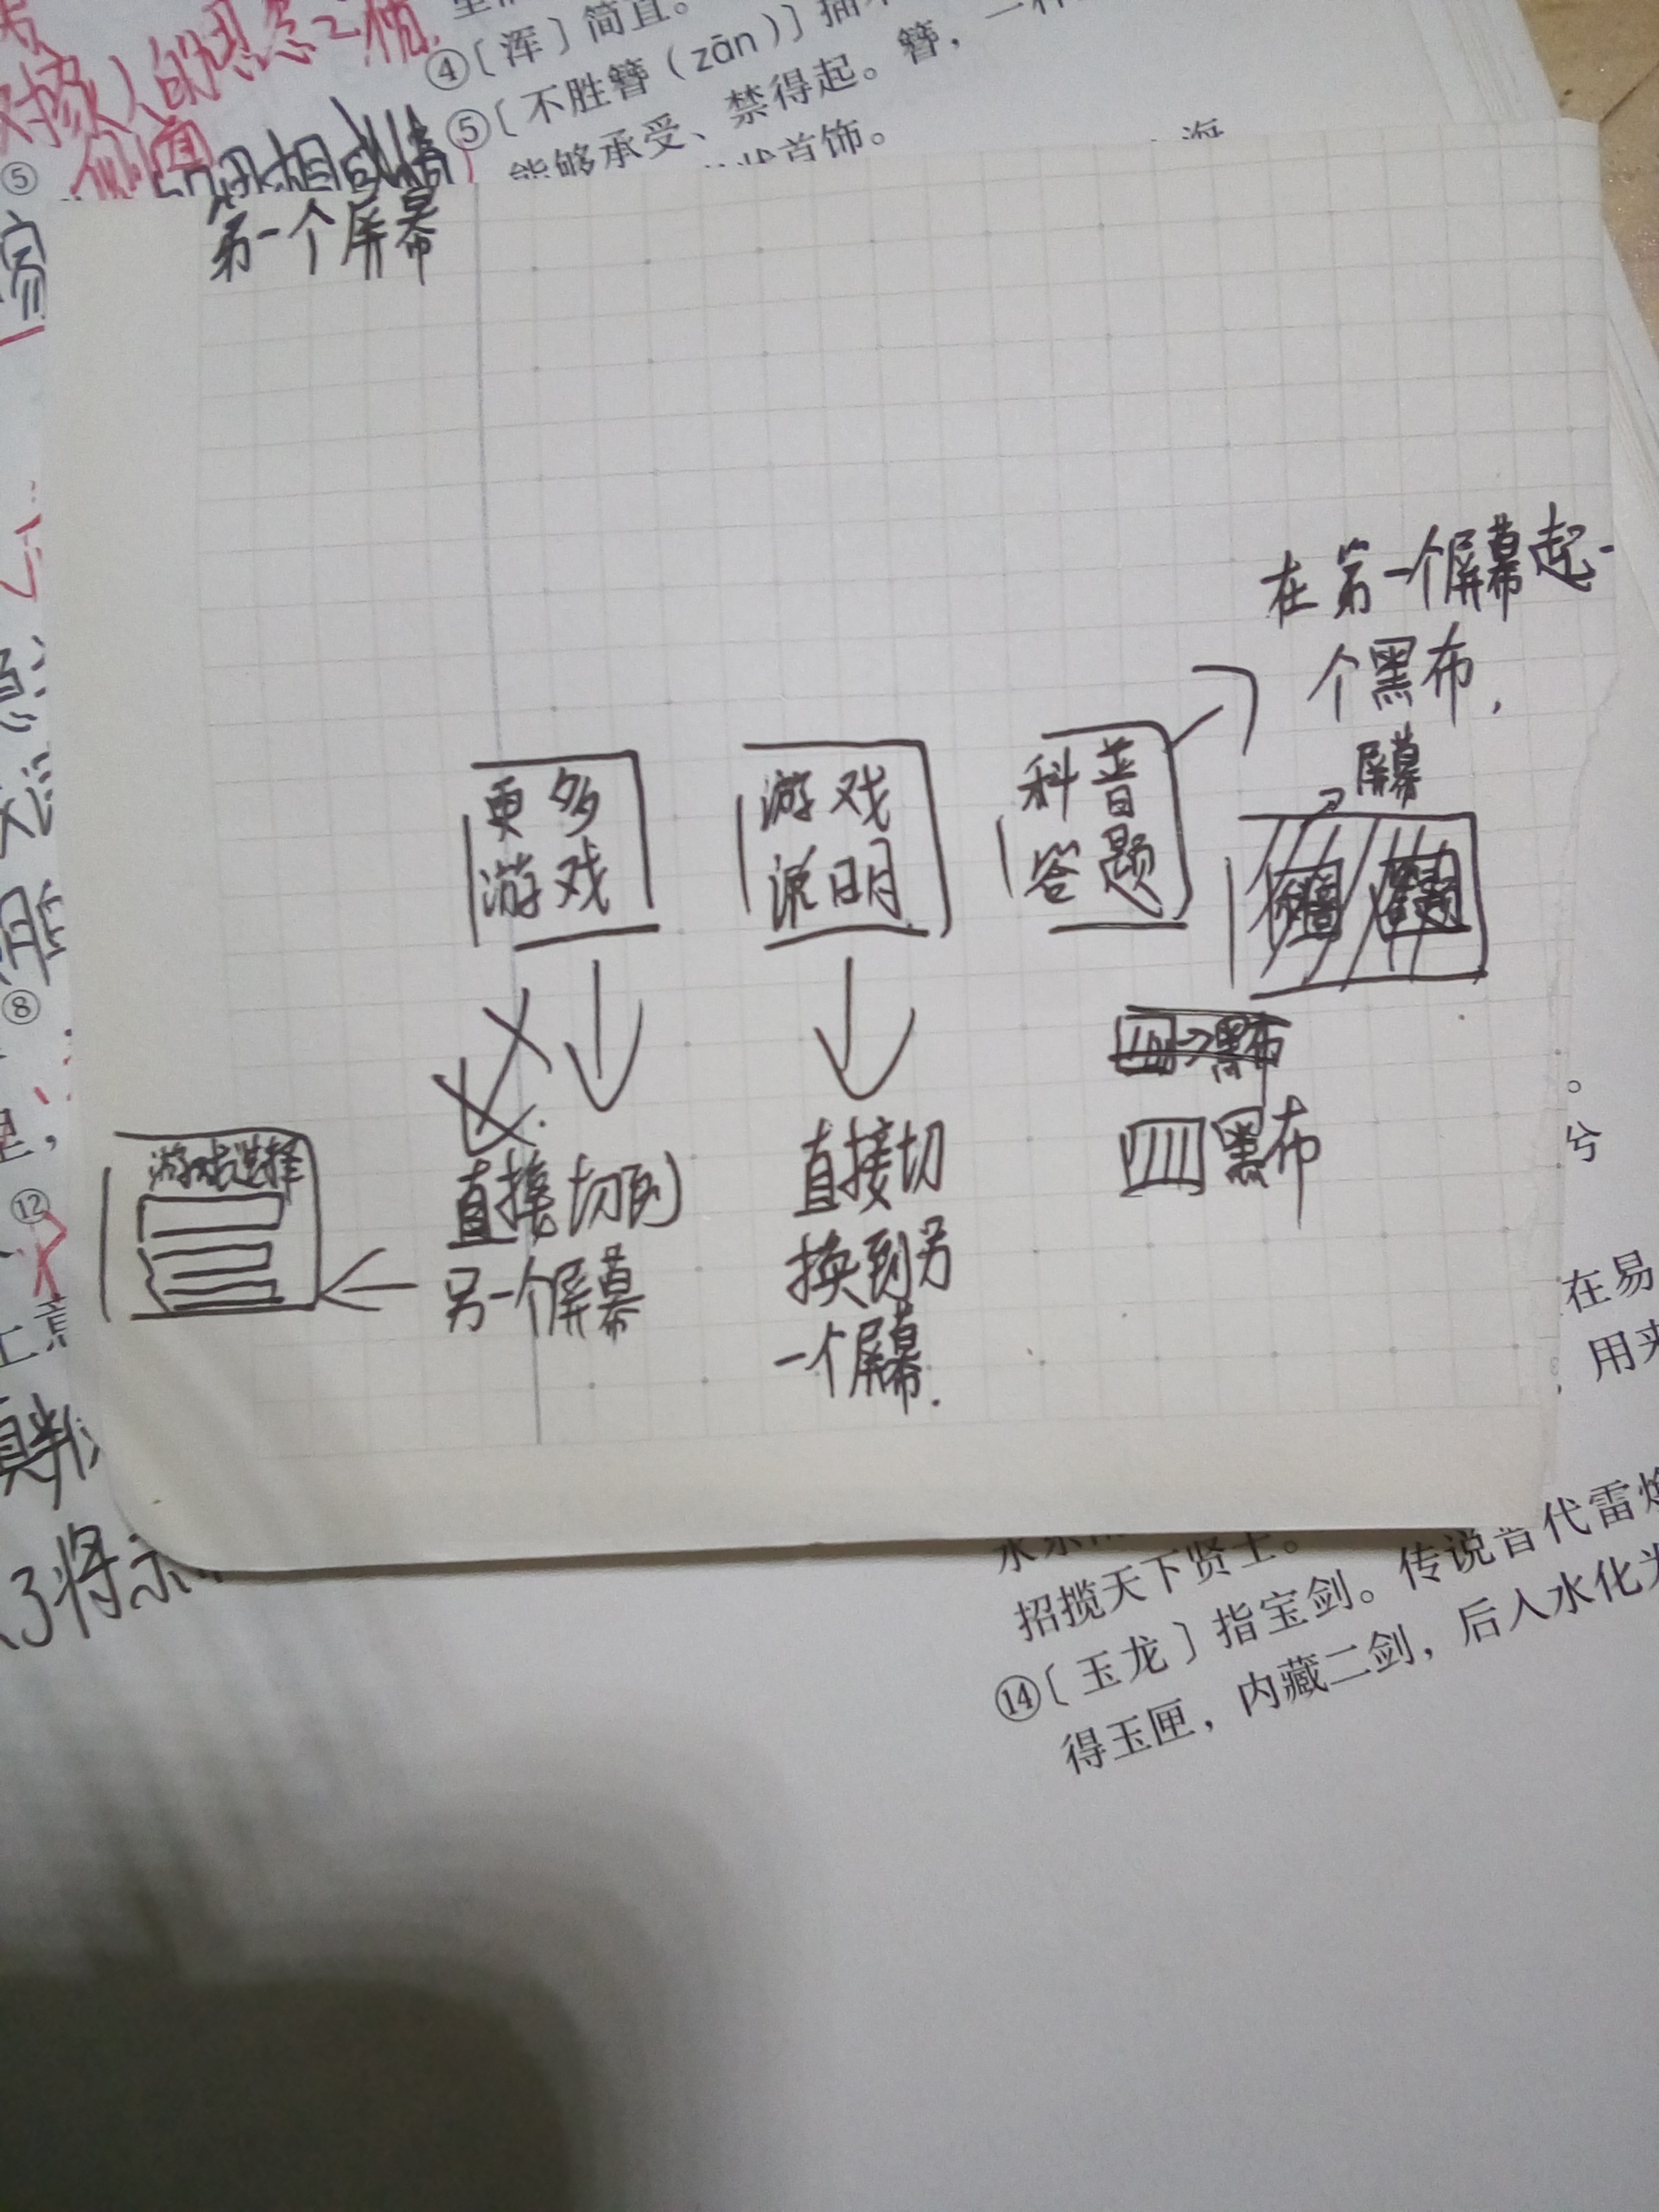 对家人的思念之情
④〔浑〕简直。
⑤〔不胜簪（zān）〕
能够承受、禁得起。簪，一种
状首饰。
⑤
第一个屏幕
在第一个屏幕起一
个黑布,
屏幕
更多
游戏
游戏
说明
科普
答题
黑布
黑布
游戏选择
直接切到
另一个屏幕
直接切
换到另
一个屏幕.
⑧
⑫
兮
在易
用来
招揽天下贤士。
⑭〔玉龙〕指宝剑。传说晋代雷焕
得玉匣，内藏二剑，后入水化为
了将